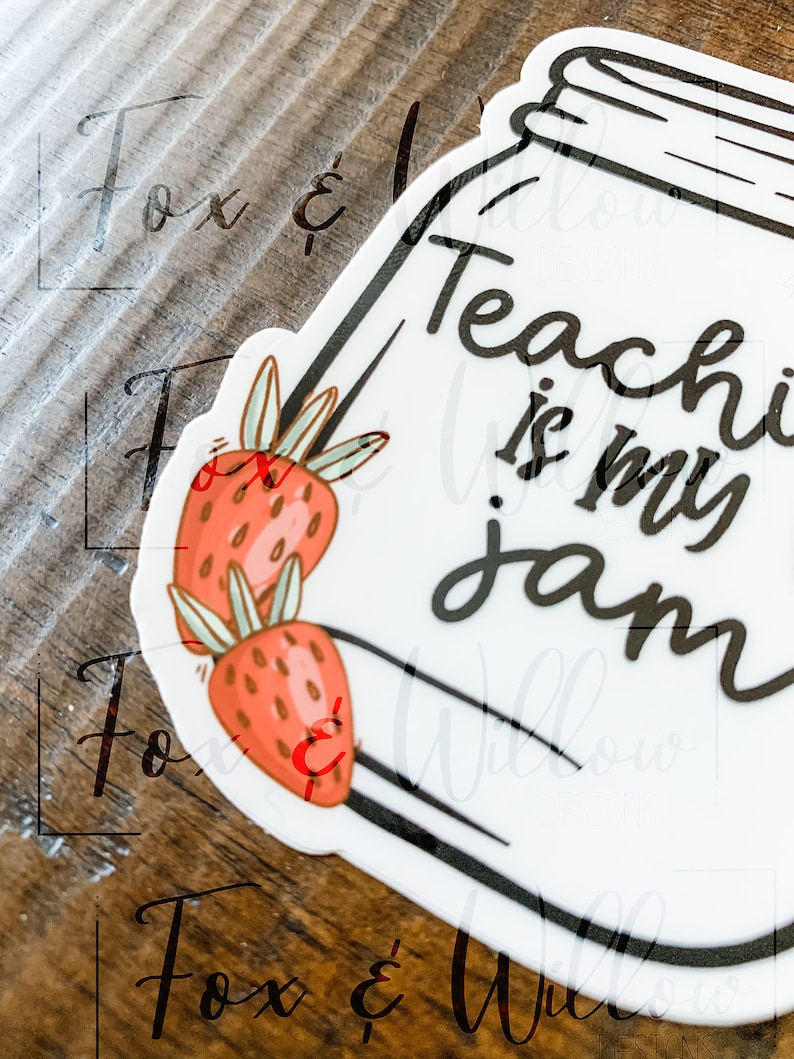 Fox & Willow
DESIGNS
Teachi
is my
jam
Fox & Willow
DESIGNS
Fox & Willow
DESIGNS
Fox & Willow
DESIGNS